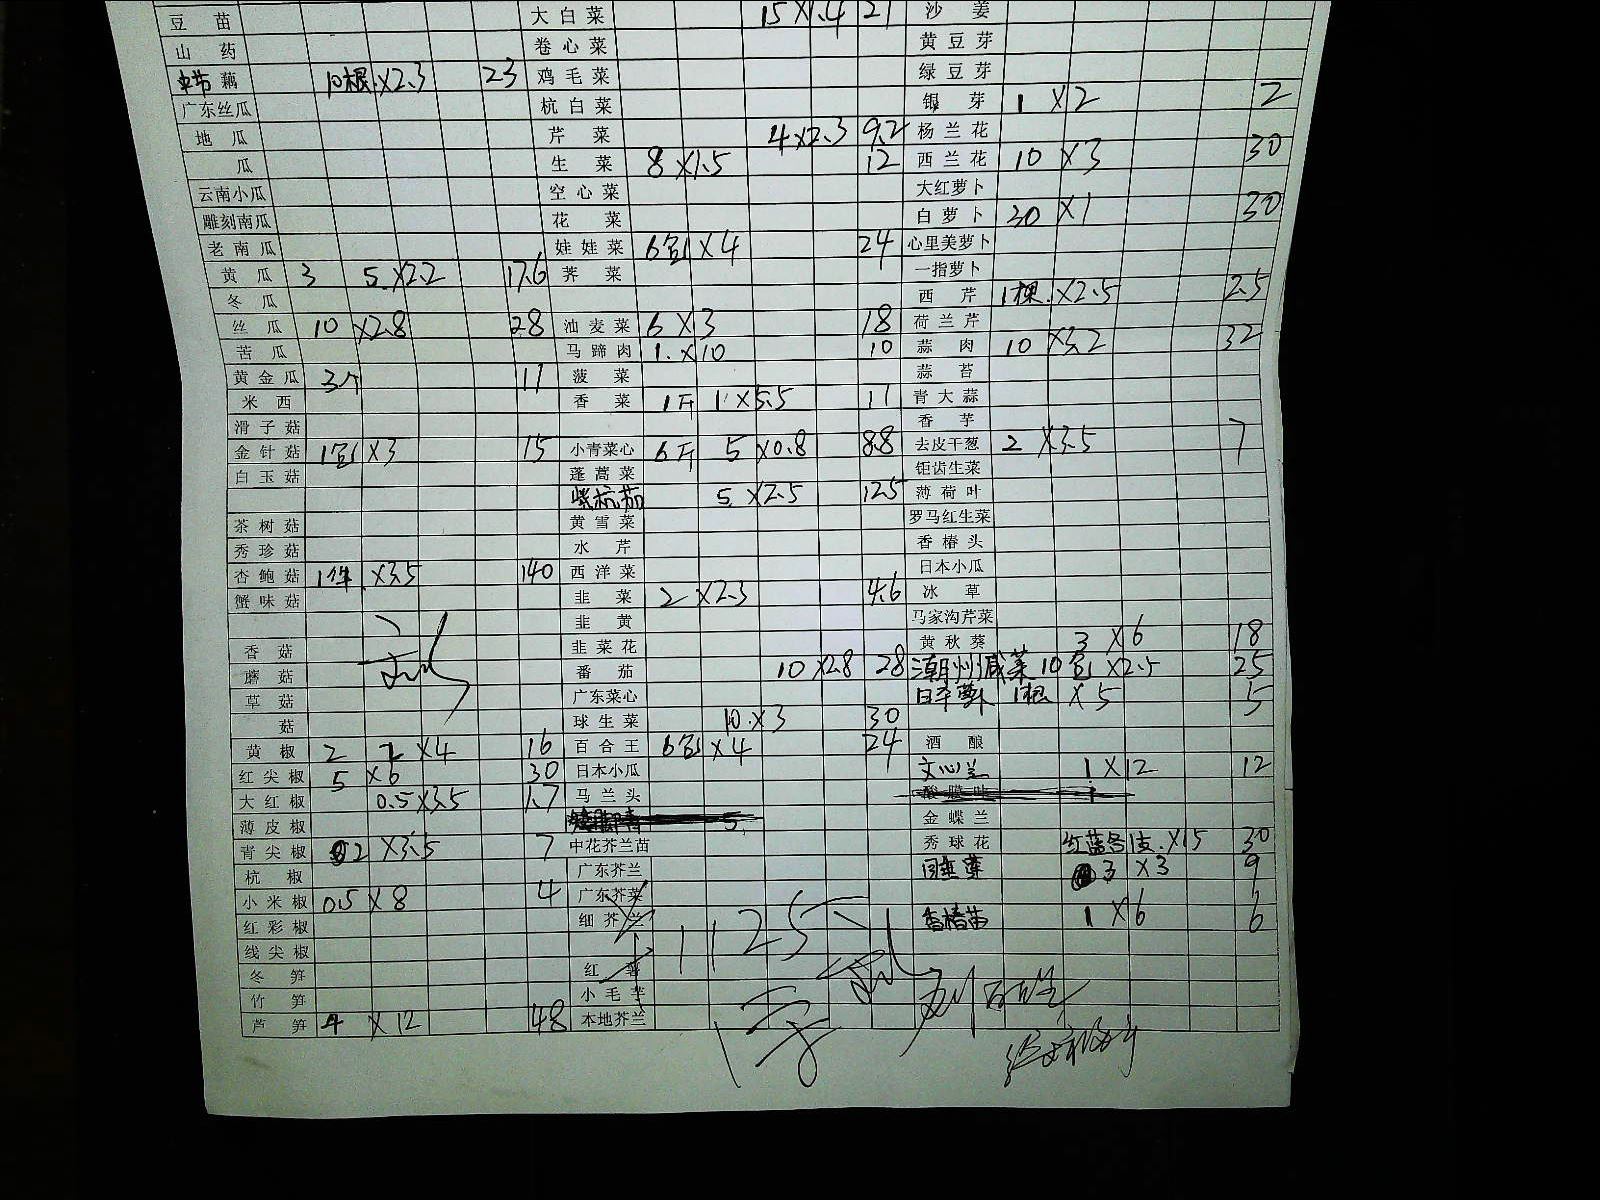 豆苗
山药
中节藕 10根 ×2.3 23
广东丝瓜
地瓜
瓜
云南小瓜
雕刻南瓜
老南瓜
黄瓜 3 5 ×2.2 17.6
冬瓜
丝瓜 10 ×2.8 28
苦瓜
黄金瓜 3个 11
米西
滑子菇
金针菇 1包 ×3 15
白玉菇
茶树菇
秀珍菇
杏鲍菇 1件 ×3.5 140
蟹味菇
香菇
蘑菇
草菇
菇
黄椒 2 2 ×4 16
红尖椒 5 ×6 30
大红椒 0.5 ×3.5 1.7
薄皮椒
青尖椒 2 ×3.5 7
杭椒
小米椒 0.5 ×8 4
红彩椒
线尖椒
冬笋
竹笋
芦笋 4 ×12 48
大白菜 15 ×1.4 21
卷心菜
鸡毛菜
杭白菜
芹菜 4 ×2.3 9.2
生菜 8 ×1.5 12
空心菜
花菜
娃娃菜 6包 ×4 24
荠菜
油麦菜 6 ×3 18
马蹄肉 1. ×10 10
菠菜
香菜 1斤 1 ×5.5 11
小青菜心 6斤 5 ×0.8 8.8
蓬蒿菜
紫杭茄 5 ×2.5 12.5
黄雪菜
水芹
西洋菜
韭菜 2 ×2.3 4.6
韭黄
韭菜花
番茄 10 ×2.8 28
广东菜心
球生菜 10 ×3 30
百合王 6包 ×4 24
日本小瓜
马兰头
5
中花芥兰苗
广东芥兰
广东芥菜
细芥兰
1125
红薯
小毛芋
本地芥兰
沙姜
黄豆芽
绿豆芽
银芽 1 ×2 2
杨兰花
西兰花 10 ×3 30
大红萝卜
白萝卜 30 ×1 30
心里美萝卜
一指萝卜
西芹 1棵 ×2.5 2.5
荷兰芹
蒜肉 10 ×3.2 32
蒜苔
青大蒜
香芋
去皮干葱 2 ×3.5 7
钜齿生菜
薄荷叶
罗马红生菜
香椿头
日本小瓜
冰草
马家沟芹菜
黄秋葵 3 ×6 18
潮州咸菜 10包 ×2.5 25
日本萝卜 1根 ×5 5
酒酿
文心兰 1 ×12 12
金蝶兰
秀球花 红蓝各1支 ×15 30
3 ×3 9
香椿苗 1 ×6 6